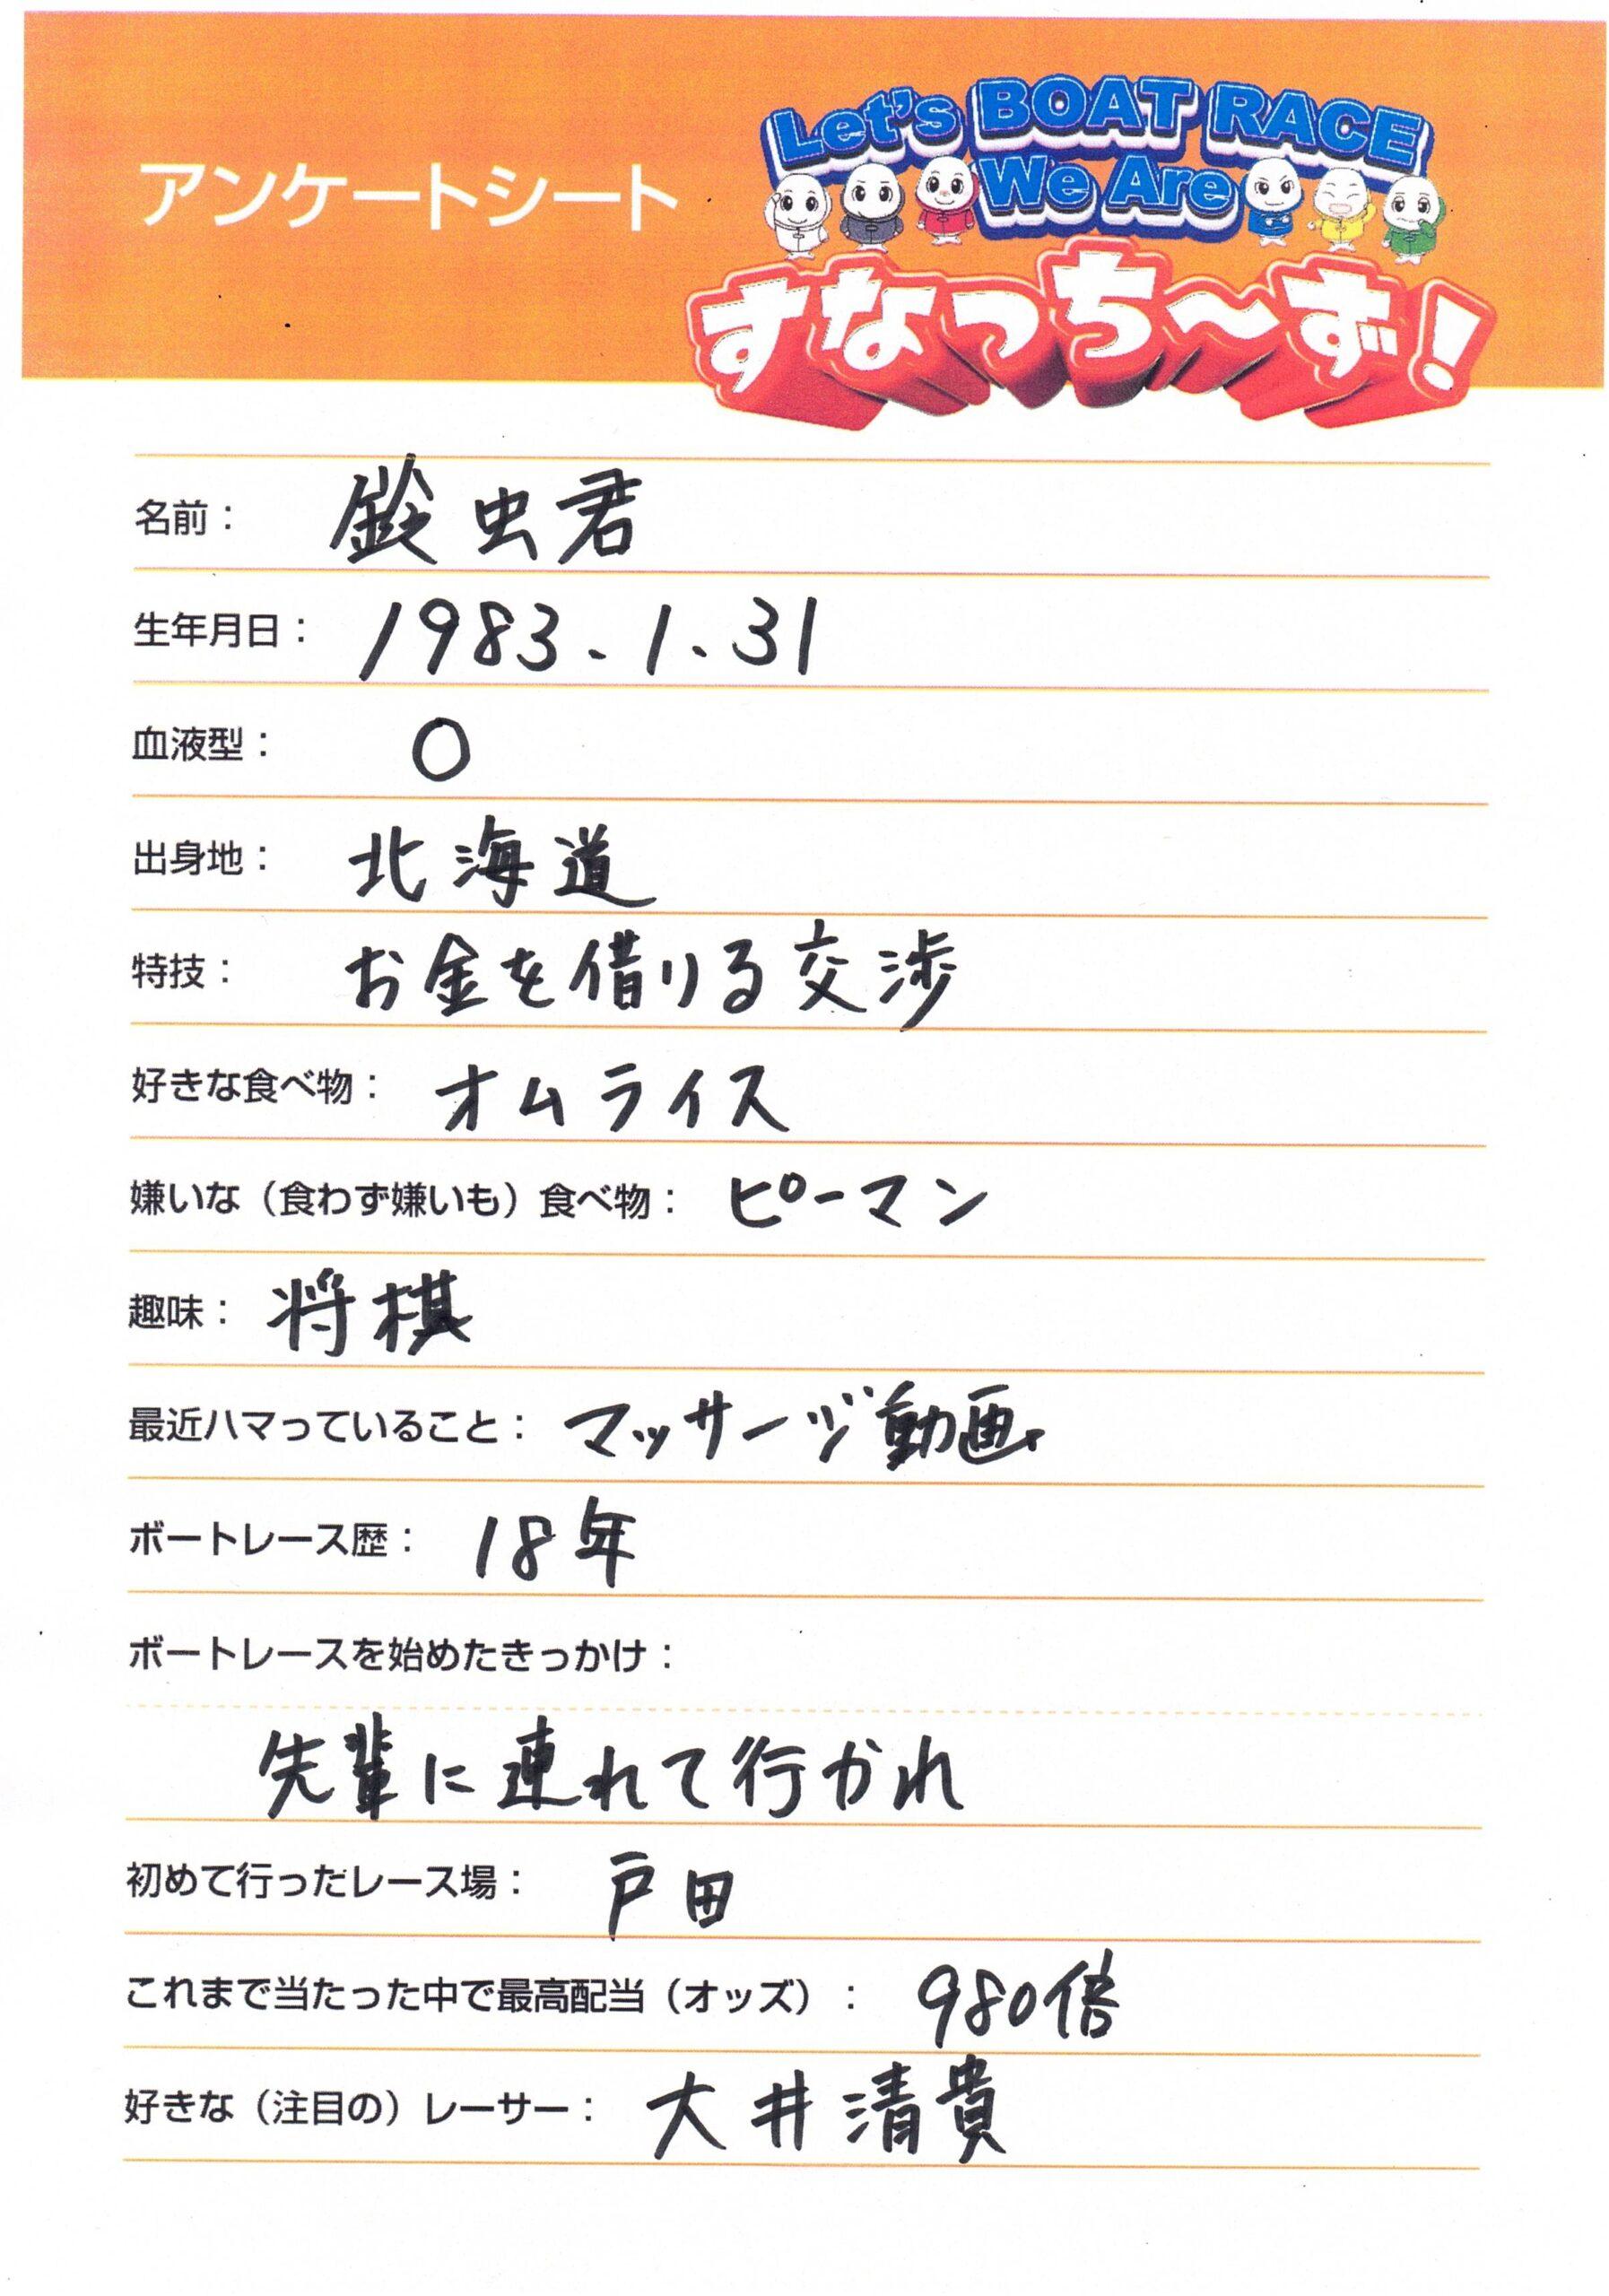 アンケートシート
Let's BOAT RACE
We Are
すなっち～ず!
名前： 鈴虫君
生年月日： 1983.1.31
血液型： O
出身地： 北海道
特技： お金を借りる交渉
好きな食べ物： オムライス
嫌いな（食わず嫌いも）食べ物： ピーマン
趣味： 将棋
最近ハマっていること： マッサージ動画
ボートレース歴： 18年
ボートレースを始めたきっかけ：
先輩に連れて行かれ
初めて行ったレース場： 戸田
これまで当たった中で最高配当（オッズ）： 980倍
好きな（注目の）レーサー： 大井清貴